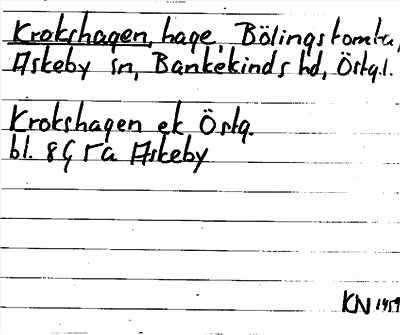 Krokshagen, hage, Bölingstomta,
Askeby sn, Bankekinds hd, Östgl.
Krokshagen ek Östg.
bl. 8G 5a Askeby
KN 1959